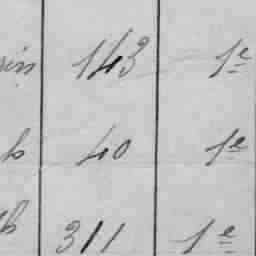 143 1e
40 1e
311 1e